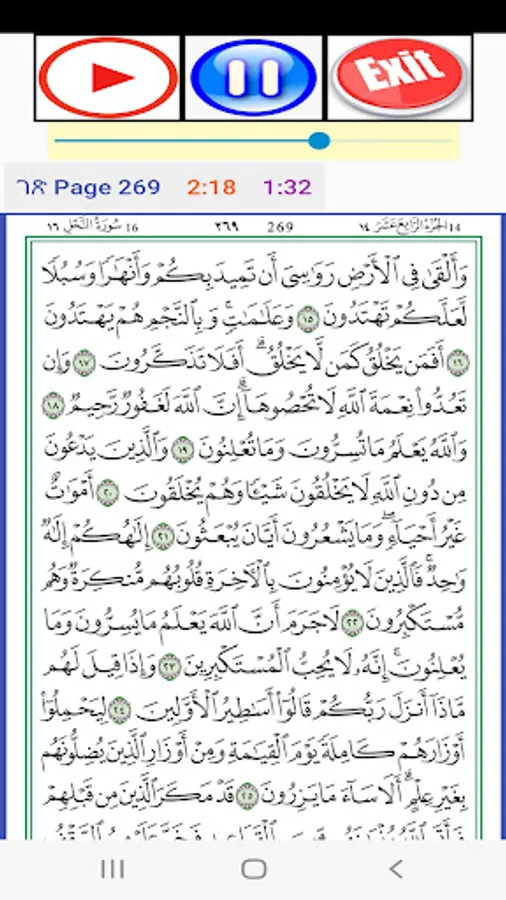 Exit
ገጽ Page 269 2:18 1:32
١٤ الجُزْءُ الرَّابِعَ عَشَرَ 14 269 ٢٦٩ 16 سُورَةُ النَّحْلِ ١٦
وَأَلْقَىٰ فِي ٱلْأَرْضِ رَوَٰسِيَ أَن تَمِيدَ بِكُمْ وَأَنْهَٰرًا وَسُبُلًا
لَّعَلَّكُمْ تَهْتَدُونَ ١٥ وَعَلَٰمَٰتٍۚ وَبِٱلنَّجْمِ هُمْ يَهْتَدُونَ
١٦ أَفَمَن يَخْلُقُ كَمَن لَّا يَخْلُقُۗ أَفَلَا تَذَكَّرُونَ ١٧ وَإِن
تَعُدُّوا۟ نِعْمَةَ ٱللَّهِ لَا تُحْصُوهَآۗ إِنَّ ٱللَّهَ لَغَفُورٌ رَّحِيمٌ ١٨
وَٱللَّهُ يَعْلَمُ مَا تُسِرُّونَ وَمَا تُعْلِنُونَ ١٩ وَٱلَّذِينَ يَدْعُونَ
مِن دُونِ ٱللَّهِ لَا يَخْلُقُونَ شَيْـًٔا وَهُمْ يُخْلَقُونَ ٢٠ أَمْوَٰتٌ
غَيْرُ أَحْيَآءٍۖ وَمَا يَشْعُرُونَ أَيَّانَ يُبْعَثُونَ ٢١ إِلَٰهُكُمْ إِلَٰهٌ
وَٰحِدٌۚ فَٱلَّذِينَ لَا يُؤْمِنُونَ بِٱلْأَخِرَةِ قُلُوبُهُم مُّنكِرَةٌ وَهُم
مُّسْتَكْبِرُونَ ٢٢ لَا جَرَمَ أَنَّ ٱللَّهَ يَعْلَمُ مَا يُسِرُّونَ وَمَا
يُعْلِنُونَۚ إِنَّهُۥ لَا يُحِبُّ ٱلْمُسْتَكْبِرِينَ ٢٣ وَإِذَا قِيلَ لَهُم
مَّاذَآ أَنزَلَ رَبُّكُمْ قَالُوٓا۟ أَسَٰطِيرُ ٱلْأَوَّلِينَ ٢٤ لِيَحْمِلُوٓا۟
أَوْزَارَهُمْ كَامِلَةً يَوْمَ ٱلْقِيَٰمَةِ وَمِنْ أَوْزَارِ ٱلَّذِينَ يُضِلُّونَهُم
بِغَيْرِ عِلْمٍۗ أَلَا سَآءَ مَا يَزِرُونَ ٢٥ قَدْ مَكَرَ ٱلَّذِينَ مِن قَبْلِهِمْ